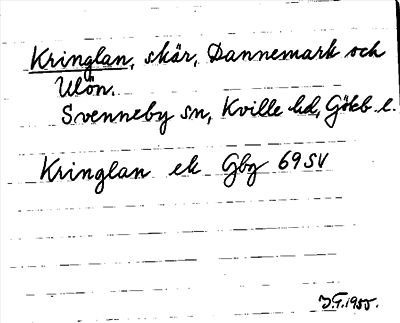 Kringlan, skär, Dannemark och
Ulön.
Svenneby sn, Kville hd, Göteb l.
Kringlan ek Gbg 69 SV
J.G. 1955.